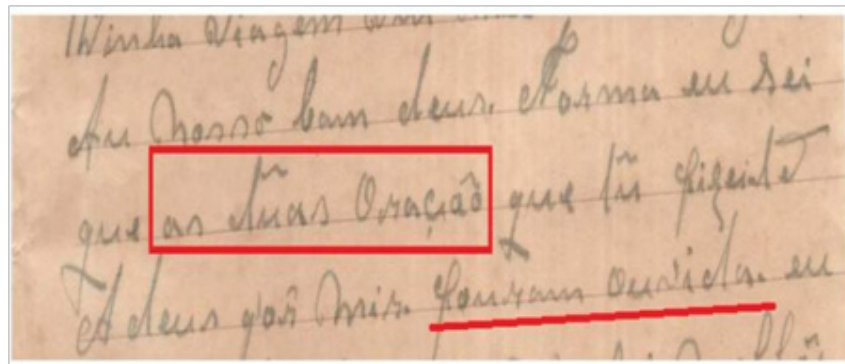 Minha Viagem
Au nosso bam deus. Norma eu sei
que as tũas Oração que tũ fizeite
A deus por mir. fouram ouvida. eu